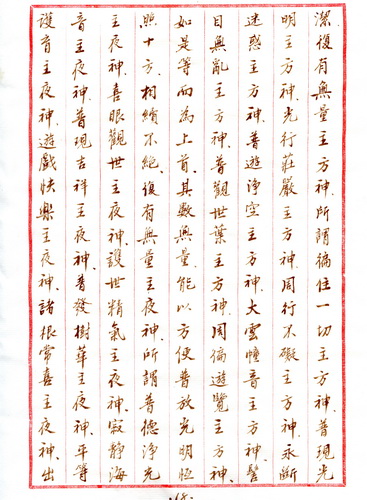 潔復有無量主方神、所謂徧住一切主方神、普現光
明主方神、光行莊嚴主方神、周行不礙主方神、永斷
迷惑主方神、普遊淨空主方神、大雲幢音主方神、髻
目無亂主方神、普觀世業主方神、周徧遊覽主方神、
如是等而為上首、其數無量、能以方便普放光明、恒
照十方、相續不絕、復有無量主夜神、所謂普德淨光
主夜神、喜眼觀世主夜神、護世精氣主夜神、寂靜海
音主夜神、普現吉祥主夜神、普發樹華主夜神、平等
護育主夜神、遊戲快樂主夜神、諸根常喜主夜神、出
18.